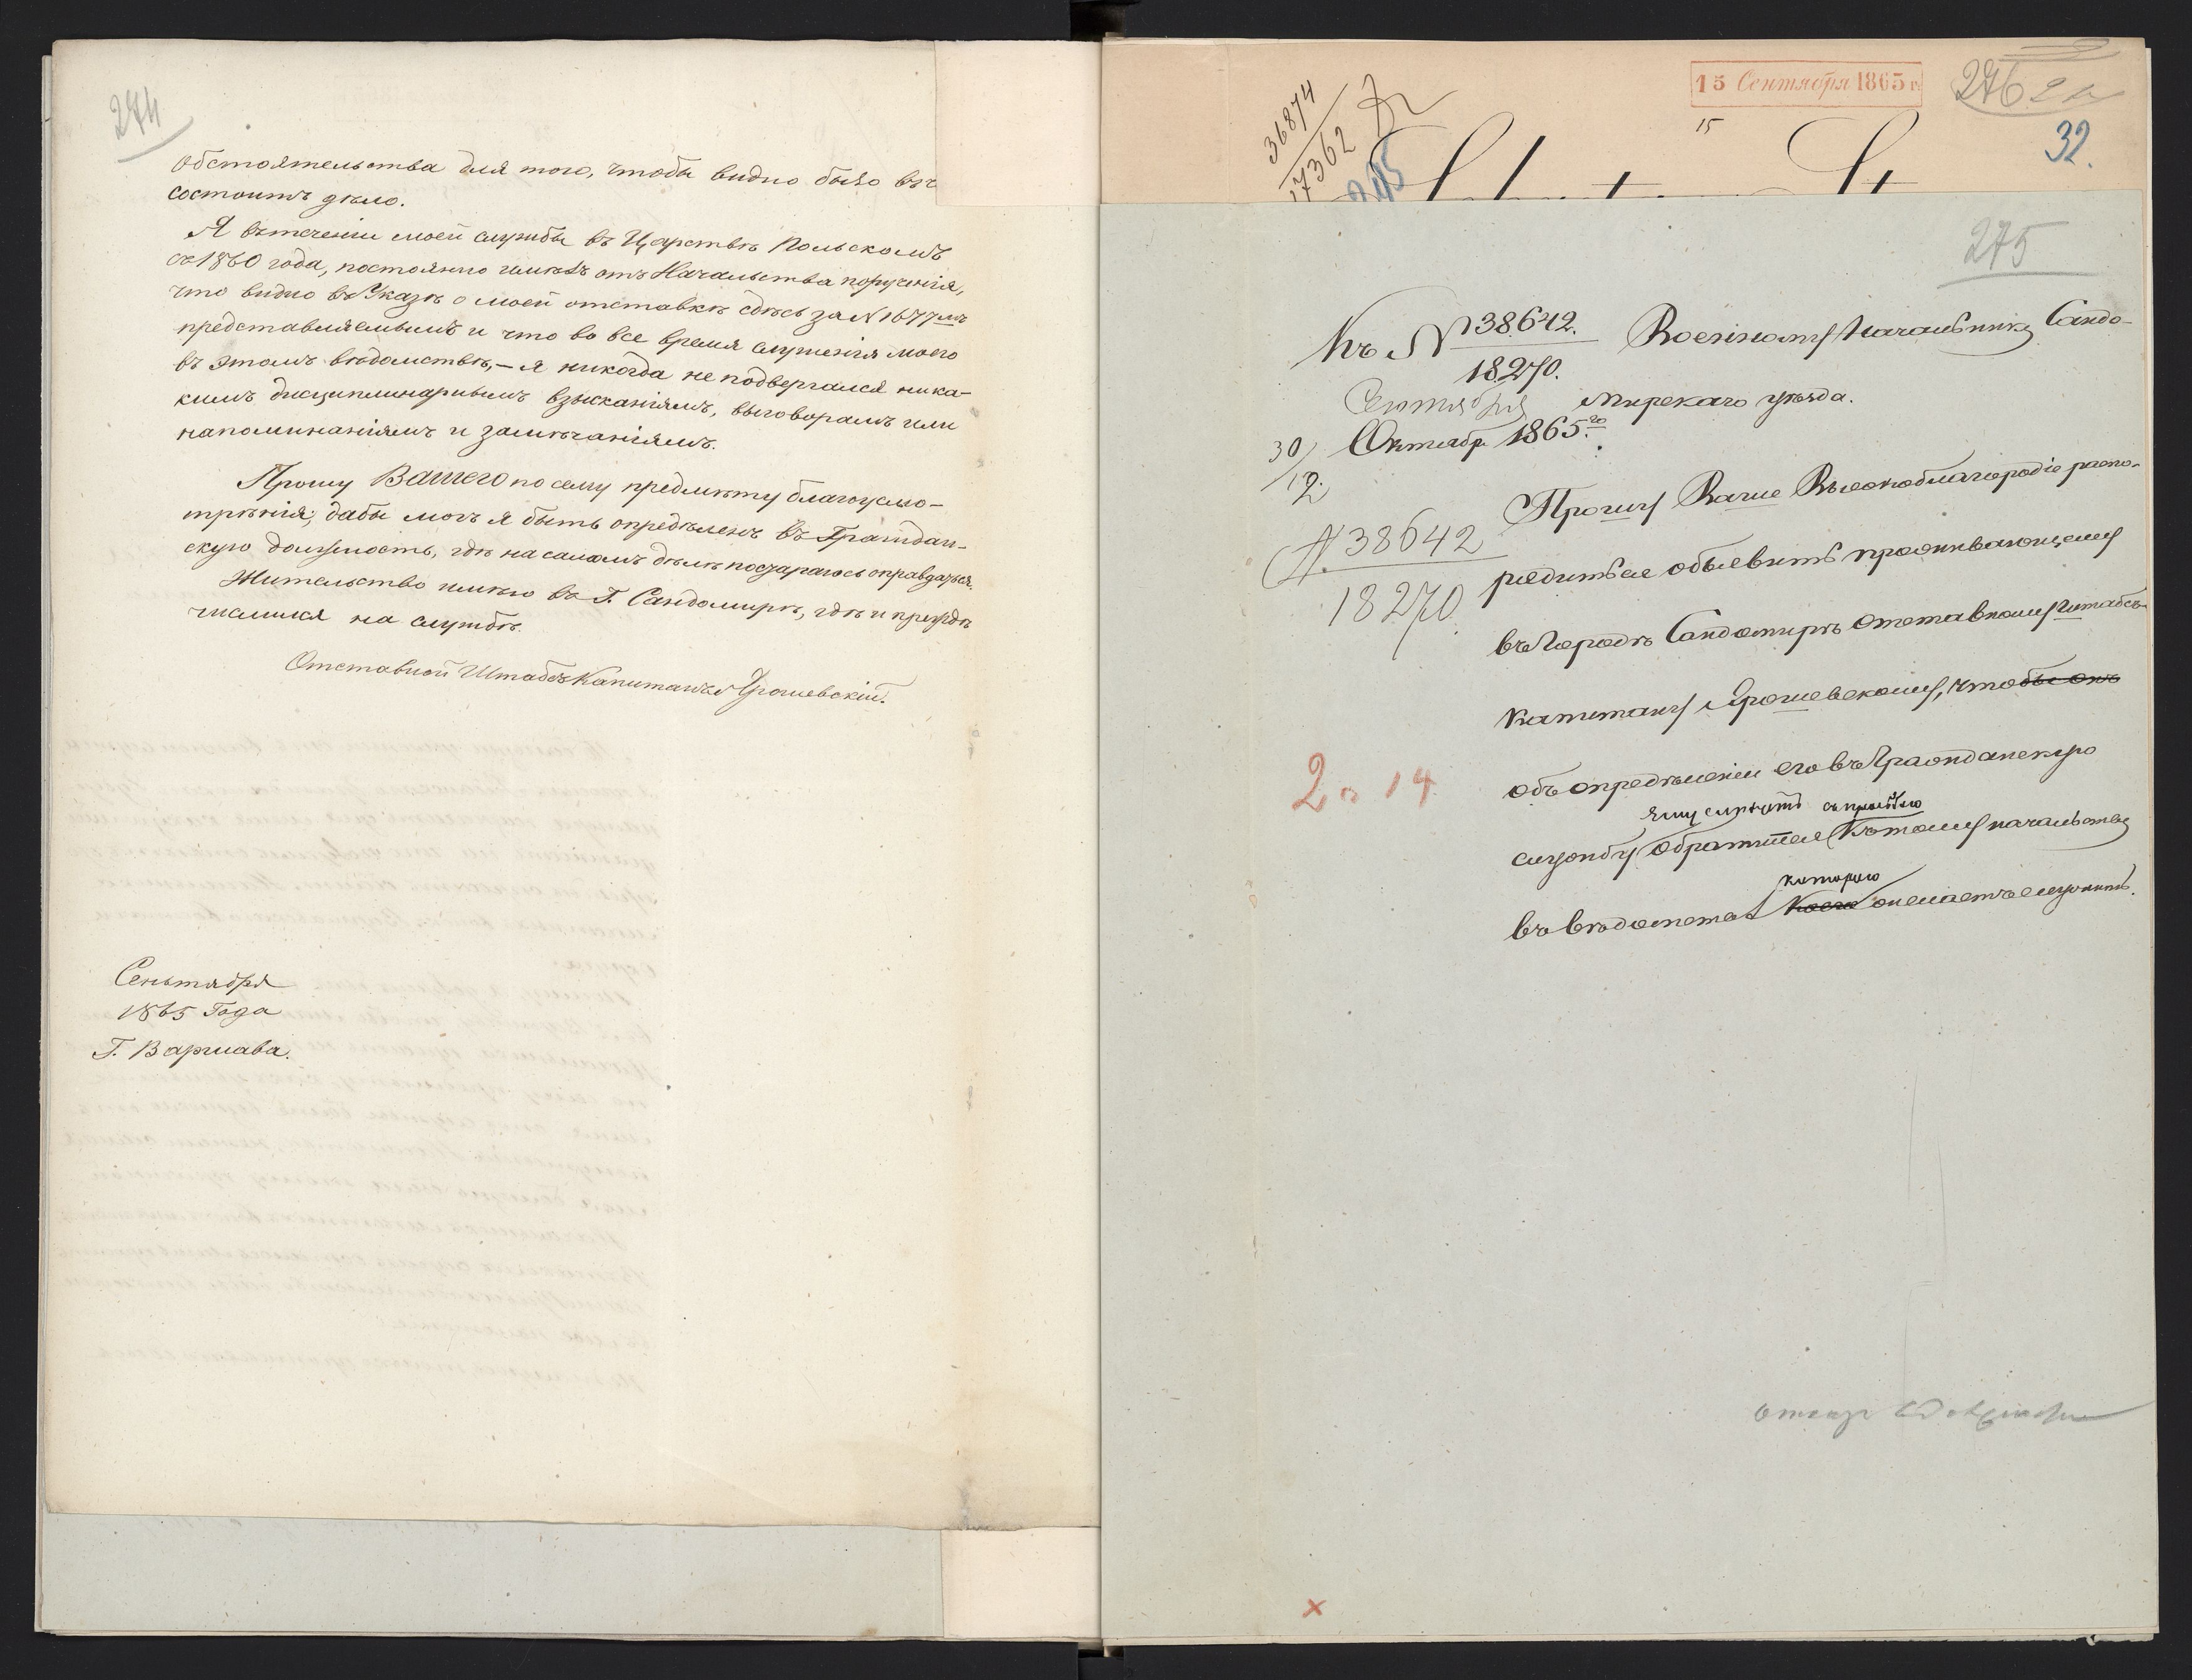 274
обстоятельства для того, чтобы видно было въ ч
состоитъ дѣло.
Я въ теченіи моей службы въ Царствѣ Польскомъ
съ 1860 года, постоянно имѣлъ отъ Начальства порученія,
что видно въ Указѣ о моей отставкѣ сдѣсь за N 1677мъ
представляемымъ и что во все время служенія моего
въ этомъ вѣдомствѣ, – я никогда не подвергался ника-
кимъ дисциплинарнымъ взысканіямъ, выговорамъ или
напоминаніямъ и замѣчаніямъ.
Прошу Вашего по сему предмѣту благоусмо-
трѣнія; дабы могъ я быть опредѣленъ въ Граждан-
скую должность, гдѣ на самомъ дѣлѣ постараюсь оправдаться.
Жительство имѣю въ Г. Сандомирѣ, гдѣ и прѣждѣ
числился на службѣ.
Отставной Штабсъ Капитанъ Ярошевскій.
Сеньтября
1865 Года
Г. Варшава.
36874
17362
245
15 Сентября 1865 г.
15
276
32.
275
Къ N 38642.
18270.
Сентября
30/12 Октябр. 1865.го
N. 38642
18270
2 14
Военному Начальнику Сандо-
мирскаго уѣзда.
Прошу Ваше Высокоблагородіе распо-
редиться объевить проживающему
въ Городѣ Сандомирѣ отставному Штабсъ-
Капитану Ярошевскому, чтобы онъ
объ опредѣленіи его въ Гражданскую
ему слѣдуетъ съ просьбою
службу обратится къ тому начальству
которого
въ вѣдомстве коего желаетъ служить.